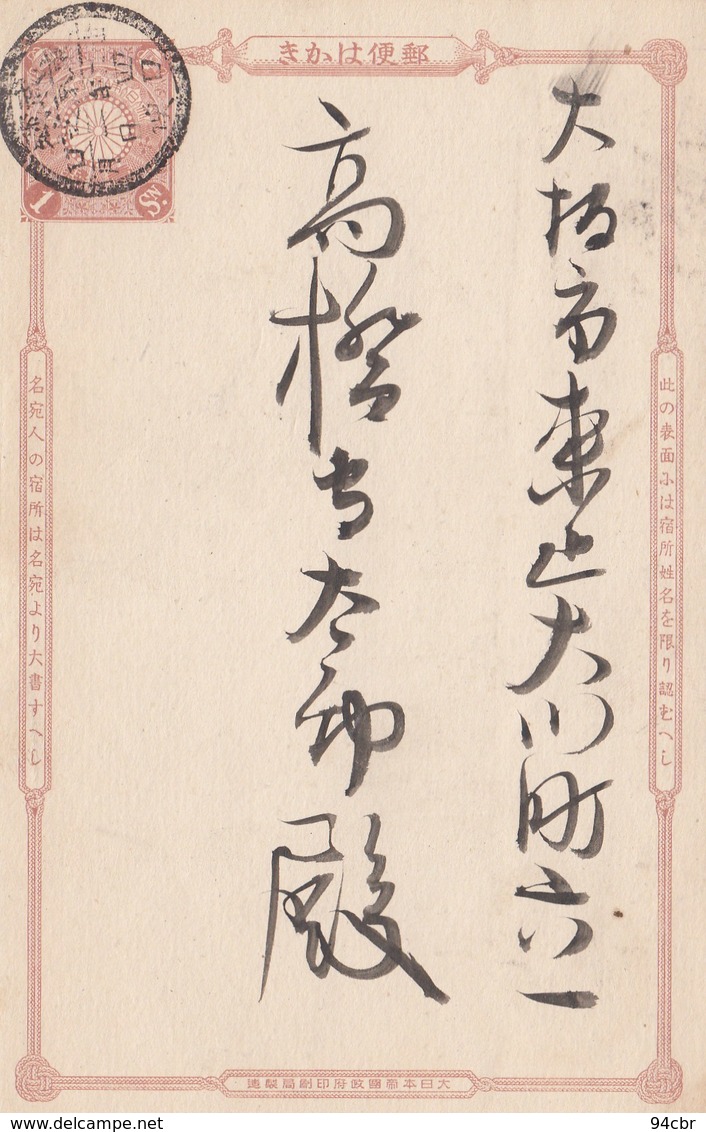 郵便はかき
大阪市東区大川町六一
高橋
太郎殿
此の表面には宿所姓名を限り認むへし
名宛人の宿所は名宛より大書すへし
1 Sn.
大日本帝國政府印刷局製造
www.delcampe.net
94cbr